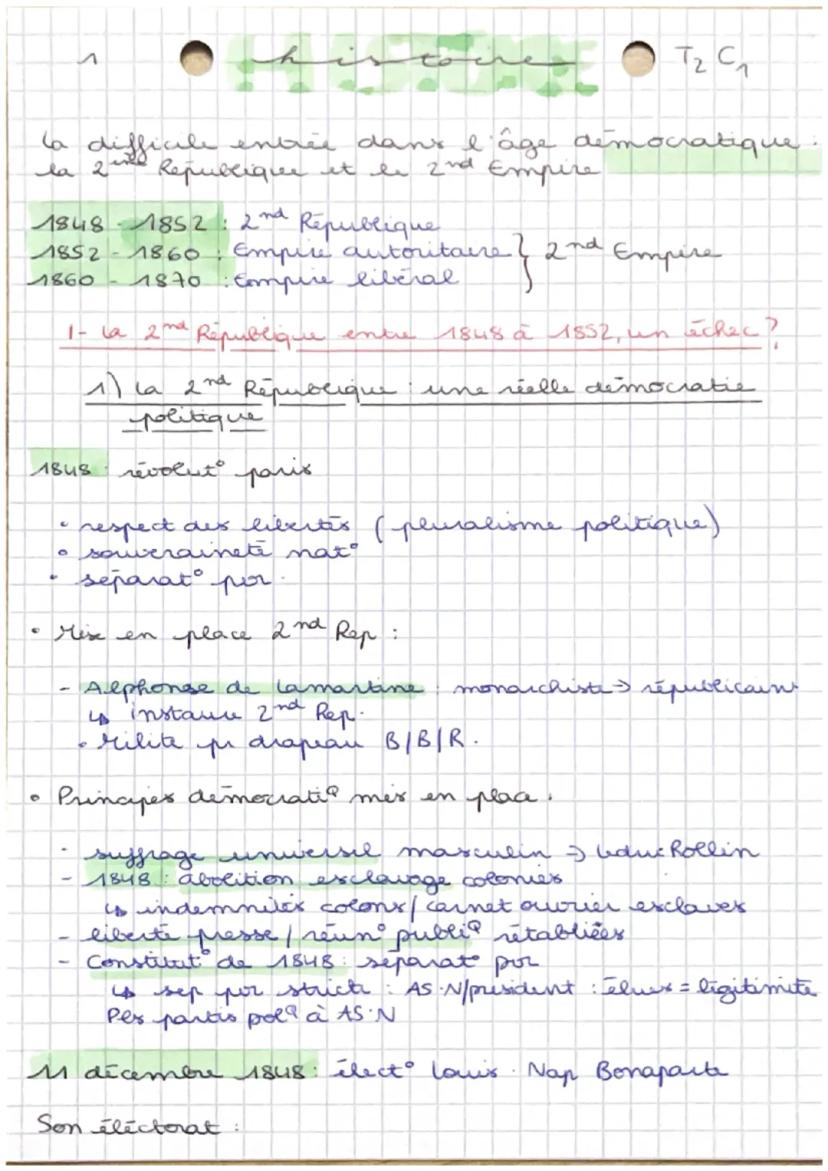 1 histoire T2 C1
La difficile entrée dans l'âge démocratique :
la 2ème République et le 2nd Empire
1848 - 1852 : 2nd République
1852 - 1860 : Empire autoritaire } 2nd Empire
1860 - 1870 : Empire libéral
1- La 2nd République entre 1848 à 1852, un échec ?
1) La 2nd République : une réelle démocratie
politique
1848 : révolut° paris
• respect des libertés (pluralisme politique)
• souveraineté nat°
• séparat° pvr.
• Mise en place 2nd Rep :
- Alphonse de Lamartine : monarchiste → républicain
↳ instaure 2nd Rep.
• Milite pr drapeau B/B/R.
• Principes démocratiq mis en place :
- suffrage universel masculin → Ledru Rollin
- 1848 : abolition esclavage colonies
↳ indemnités colons / carnet ouvrier esclaves
- liberté presse / réun° publiq rétabliées
- Constitut° de 1848 : séparat° pvr
↳ sep pvr stricte : AS.N/president : élues = légitimité
Pls partis polq à AS.N
11 décembre 1848 : élect° Louis. Nap Bonaparte
Son éléctorat :